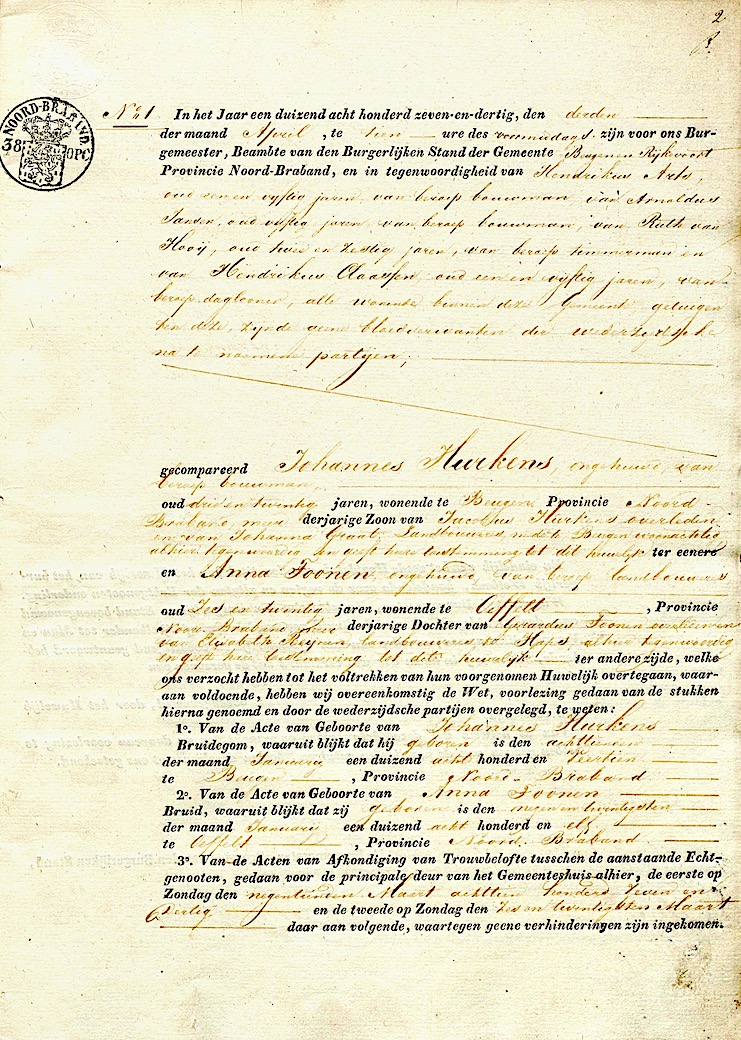 2
NOORD-BRABAND
38 OPC
No 1. In het Jaar een duizend acht honderd zeven-en-dertig, den derden
der maand April, te tien ure des voormiddags zijn voor ons Bur-
gemeester, Beambte van den Burgerlijken Stand der Gemeente Beugen en Rijkvoort
Provincie Noord-Braband, en in tegenwoordigheid van Hendrikus Arts,
oud een en vyftig jaren, van beroep bouwman van Arnoldus
Jansen, oud vyftig jaren, van beroep bouwman, van Ruth van
Hooij, oud twee en zestig jaren, van beroep timmerman en
van Hendrikus Claassen oud een en vyftig jaren, van
beroep daglooner, alle wonende binnen deze Gemeente getuigen
ten deze, zynde geene bloedverwanten der wederzydsche
na te noemene partijen,
gecompareerd Johannes Hurkens, ongehuwd, van
beroep bouwman,
oud drie en twintig jaren, wonende te Beugen Provincie Noord-
Braband, meer derjarige Zoon van Jacobus Hurkens overleden
en van Johanna Graat, Landbouweres, mede te Beugen woonachtig
alhier tegenwoordig en geeft hare toestemming tot dit huwelyk ter eenere
en Anna Toonen, ongehuwd, van beroep landbouweres
oud Zes en twintig jaren, wonende te Oeffelt, Provincie
Noord-Braband meer derjarige Dochter van Gerardus Toonen overleden en
van Elisabeth Reynen, landbouweres te Haps, alhier tegenwoordig
en geeft hare toestemming tot dit huwelyk ter andere zijde, welke
ons verzocht hebben tot het voltrekken van hun voorgenomen Huwelijk overtegaan, waar-
aan voldoende, hebben wij overeenkomstig de Wet, voorlezing gedaan van de stukken
hierna genoemd en door de wederzijdsche partijen overgelegd, te weten:
1o. Van de Acte van Geboorte van Johannes Hurkens
Bruidegom, waaruit blijkt dat hij geboren is den achttienden
der maand January een duizend acht honderd en Veertien
te Beugen, Provincie Noord-Braband
2o. Van de Acte van Geboorte van Anna Toonen
Bruid, waaruit blijkt dat zij geboren is den negen en twintigsten
der maand January een duizend acht honderd en elf
te Oeffelt, Provincie Noord-Braband
3o. Van de Acten van Afkondiging van Trouwbelofte tusschen de aanstaande Echt-
genooten, gedaan voor de principale deur van het Gemeenteshuis alhier, de eerste op
Zondag den negentienden Maart achttien honderd Zeven en
dertig en de tweede op Zondag den Zes en twintigsten Maart
daar aan volgende, waartegen geene verhinderingen zijn ingekomen.